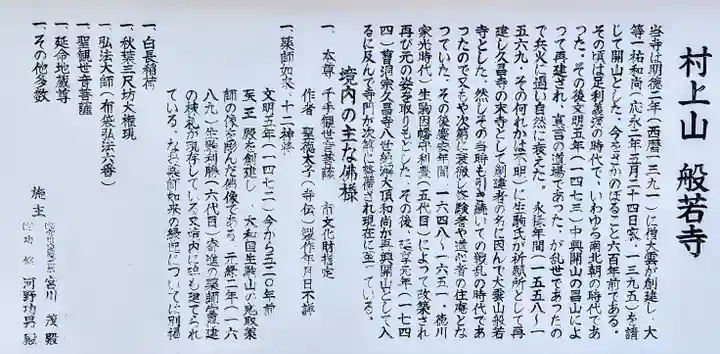 村上山 般若寺
当寺は明徳二年(西暦一三九一)に僧大雲が創建し、大
等一祐和尚(応永二年五月二十四日寂、一三九五)を請
じて開山とした。今をさかのぼること六百年前である。
その頃は足利義満の時代で、いわゆる南北朝の時代であ
った。その後文明五年(一四七三)中興開山の昌山によ
って再建され、真言の道場であった。が乱世であったの
で兵火に遇い自然に衰えた。永禄年間(一五五八~一
五六九・その何れかは不明)に生駒氏が祈願所として再
建し久昌寺の末寺として創建者の名に因んで大雲山般若
寺とした。然しその当時も引き続いての戦乱の時代であ
ったので又もや次第に衰微し修験者や道心者の住庵とな
っていた。その後慶安年間(一六四八~一六五一、徳川
家光時代)生駒因幡守利貴(五代目)によって改築され
再び元の姿を取りもどした。その後、延享元年(一七四
四)曹洞宗久昌寺八世絶海大頂和尚が再興開山として入
るに及んで寺門が次第に整備され現在に至っている。
境内の主な佛様
一、本尊 千手観世音菩薩 市文化財指定
作者 聖徳太子(寺伝)製作年月日不詳
一、薬師如来、十二神将
文明五年(一四七二)今から五二〇年前
医王殿を創建し、大和国生駒山の鬼取薬
師の像を彫んだ佛像である。元禄二年(一六
八九)生駒利勝(六代目)寄進の薬師堂建
の棟札が現存している。境内に碑も建てられ
ている。なお薬師如来の縁起については別掲
一、白長稲荷
一、秋葉三尺坊大権現
一、弘法大師(布袋弘法六番)
一、聖観世音菩薩
一、延命地蔵尊
一、その他多数
施主
宮川 茂殿
河野功男殿